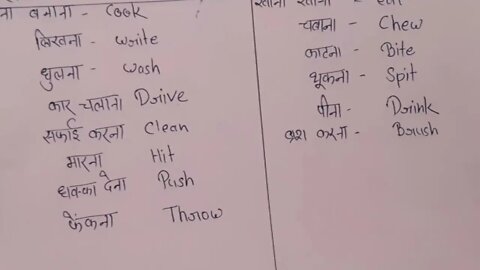 बनाना - Cook
लिखना - Write
धुलना - Wash
कार चलाना Drive
सफाई करना Clean
मारना Hit
धक्का देना Push
फेंकना Throw
चबाना - Chew
काटना - Bite
थूकना - Spit
पीना - Drink
ब्रश करना - Brush